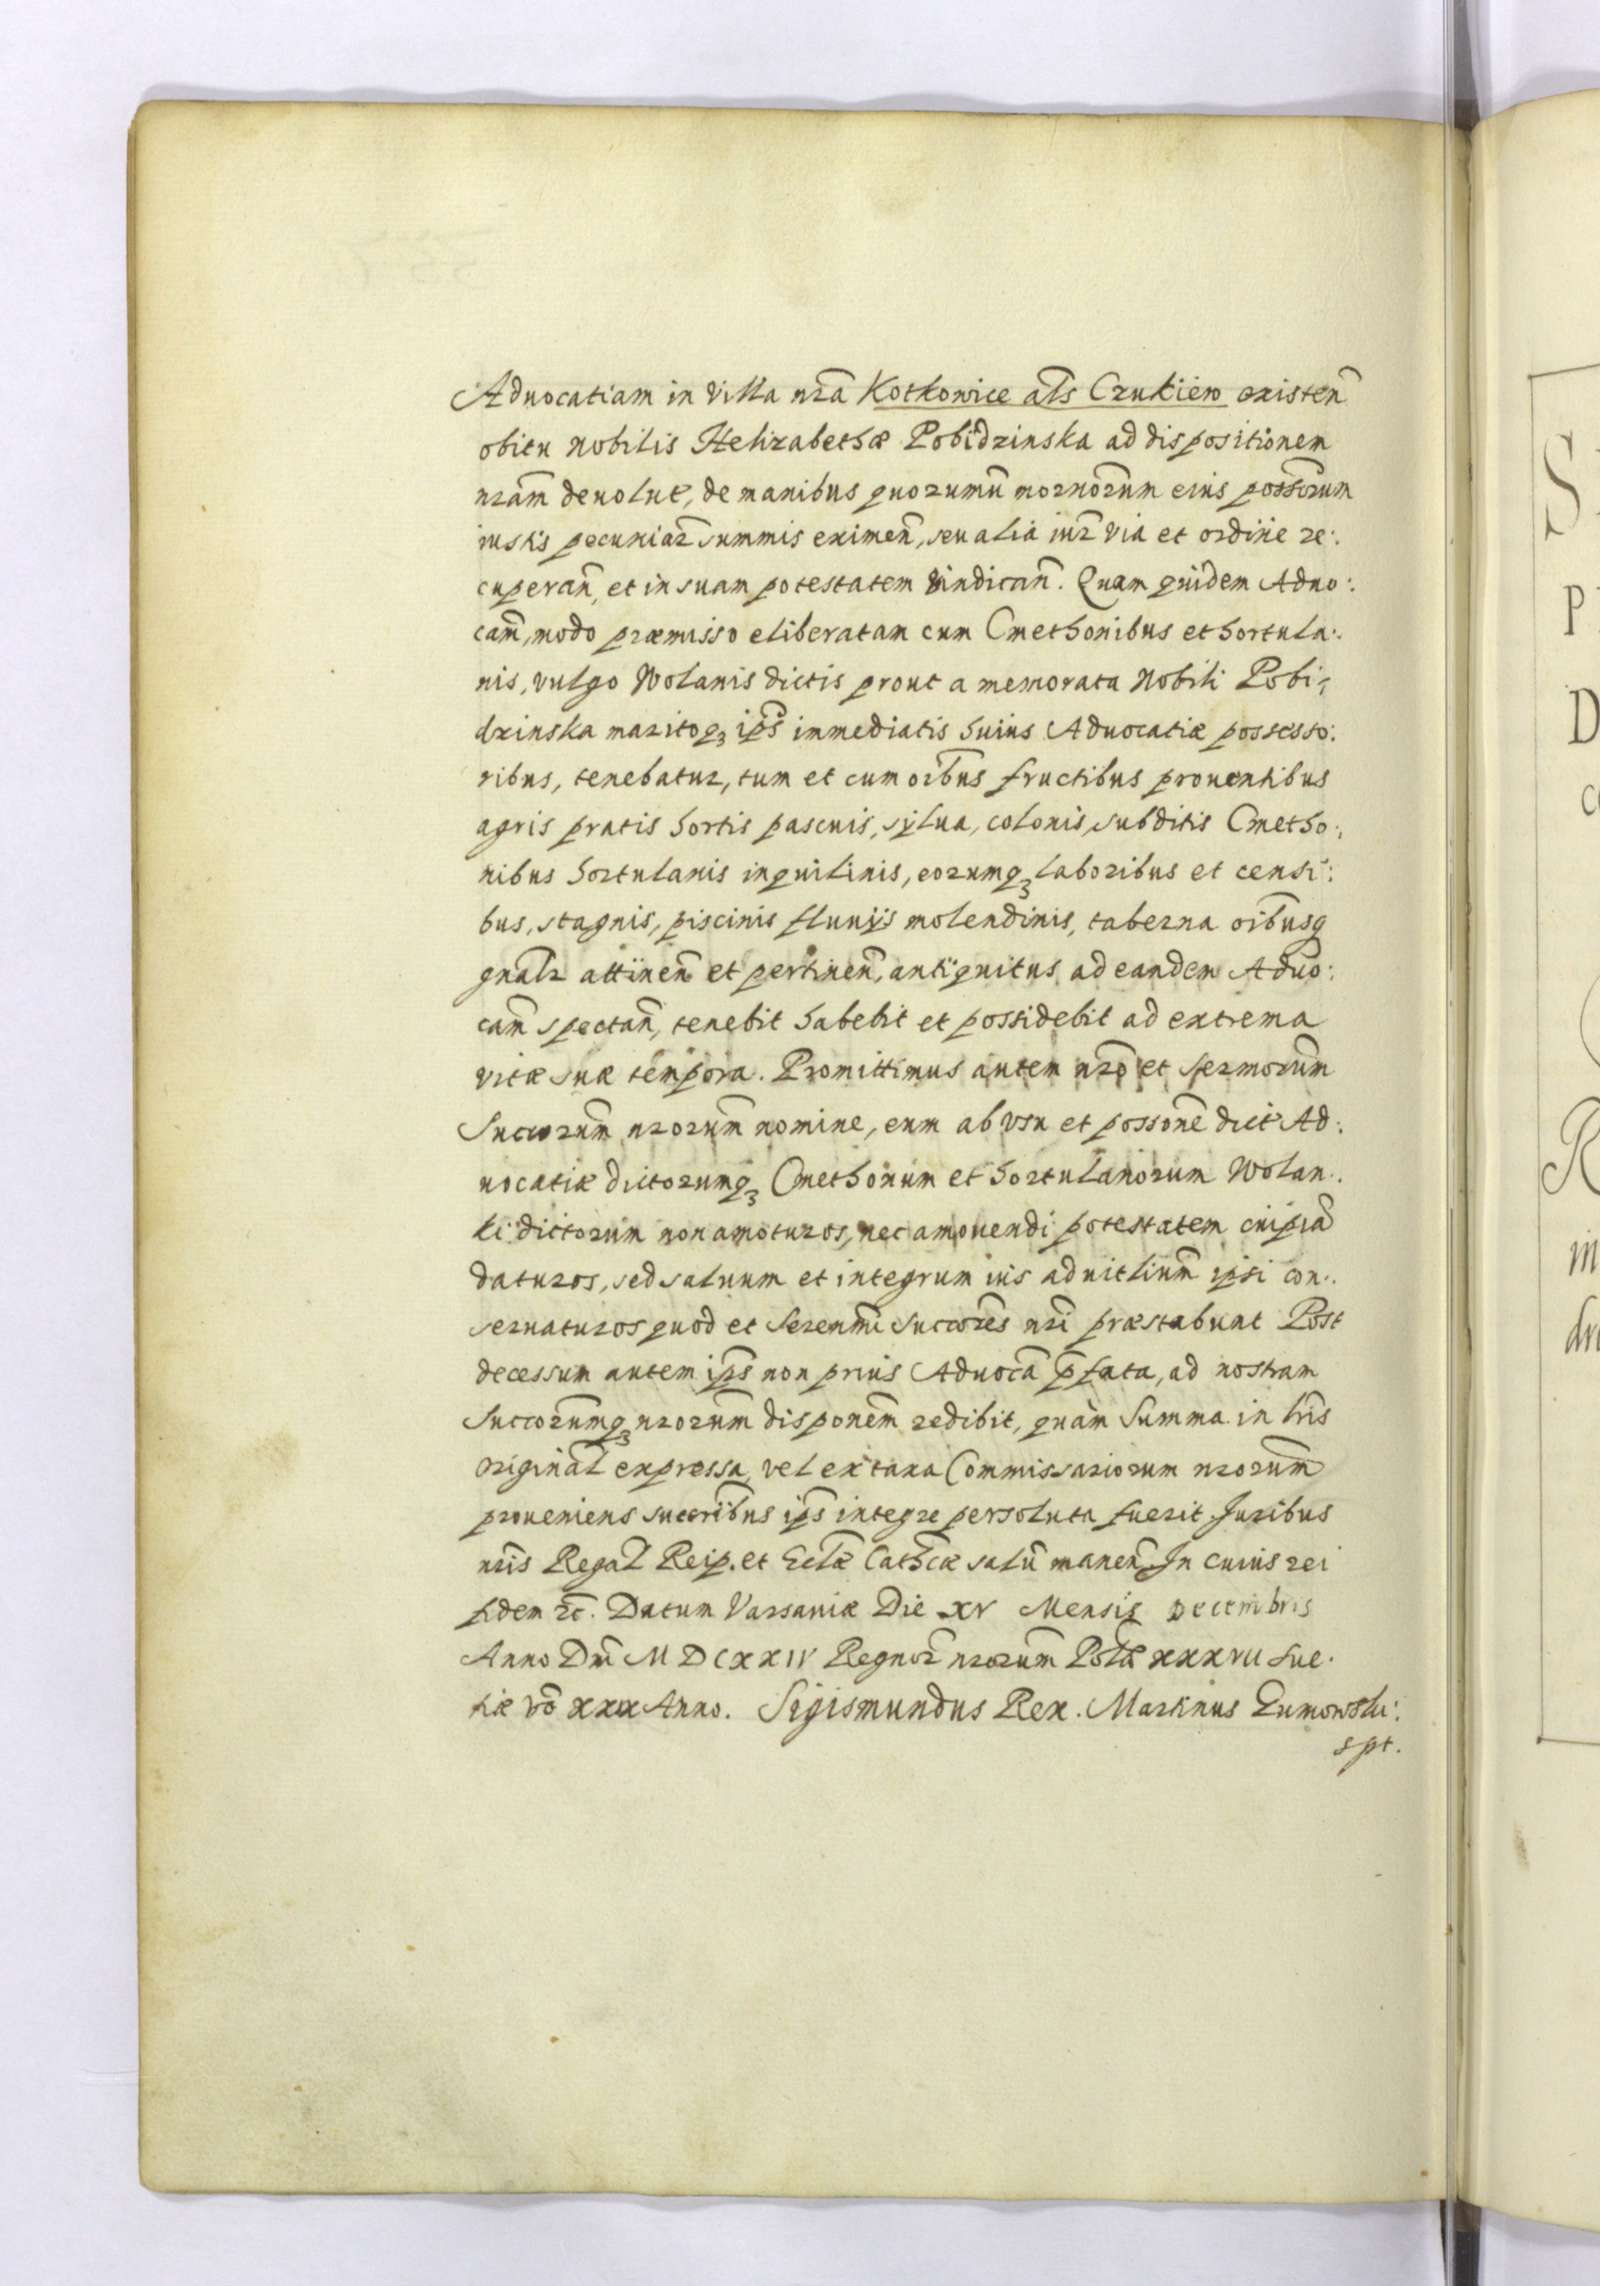 Aduocatiam in Villa nrã Kotkowice als Czukiew existeñ
obitu Nobilis Helizabethæ Pobidzinska ad dispositionem
nrãm deuolut, de manibus quorumũ mornõrum eius possõrum
iustis pecuniar summis eximeñ, seu alia iur via et ordine re:
cuperañ, et in suam potestatem vindicañ. Quam quidem Aduo:
cam̃, modo præmisso eliberatam cum Cmethonibus et hortula:
nis, vulgo Wolanis dictis prout a memorata Nobili Pobi:
dzinska maritoqꝫ ips̃ immediatis huius Aduocatiæ possesso:
ribus, tenebatur, tum et cum oĩbus fructibus prouentibus
agris pratis hortis pascuis, sylua, colonis, subditis Cmetho:
nibus hortulanis inquilinis, eorumqꝫ laboribus et censi:
bus, stagnis, piscinis fluuijs molendinis, taberna oĩbusq
gnalr attineñ et pertineñ, antiquitus ad eandem Aduo:
cam̃ spectañ, tenebit habebit et possidebit ad extrema
vitæ suæ tempora. Promittimus autem nrõ et sermorum̃
Succorum̃ nrorum̃ nomine, eum ab vsu et possonẽ dict Ad:
uocatiæ dictorumqꝫ Cmethonum et hortulanorum Wolan:
ki dictorum non amoturos, nec amouendi potestatem cuipiã
daturos, sed saluum et integrum ius aduitlium̃ ipsi con:
seruaturos quod et Serenmi Succores̃ nri præstabunt Post
decessum autem ips̃ non prius Aduocã p̃fata, ad nostram
Succorum̃qꝫ nrorum̃ disponem̃ redibit, quam Summa in lris̃
original expressa, vel ex taxa Commissariorum nrorum̃
proueniens succrĩbus ips̃ integre persoluta fuerit Juribus
nris̃ Regal Reip. et Eclæ̃ Cathcæ̃ salũ maneñ In cuius rei
fidem rc̃. Datum Varsauiæ Die XV Mensis Decembris
Anno Dni M D C XX IV Regnor nrorum̃ Polæ̃ XXXVII Sue:
tiæ võ XXX Anno. Sigismundus Rex. Martinus Zumowski:
spt.